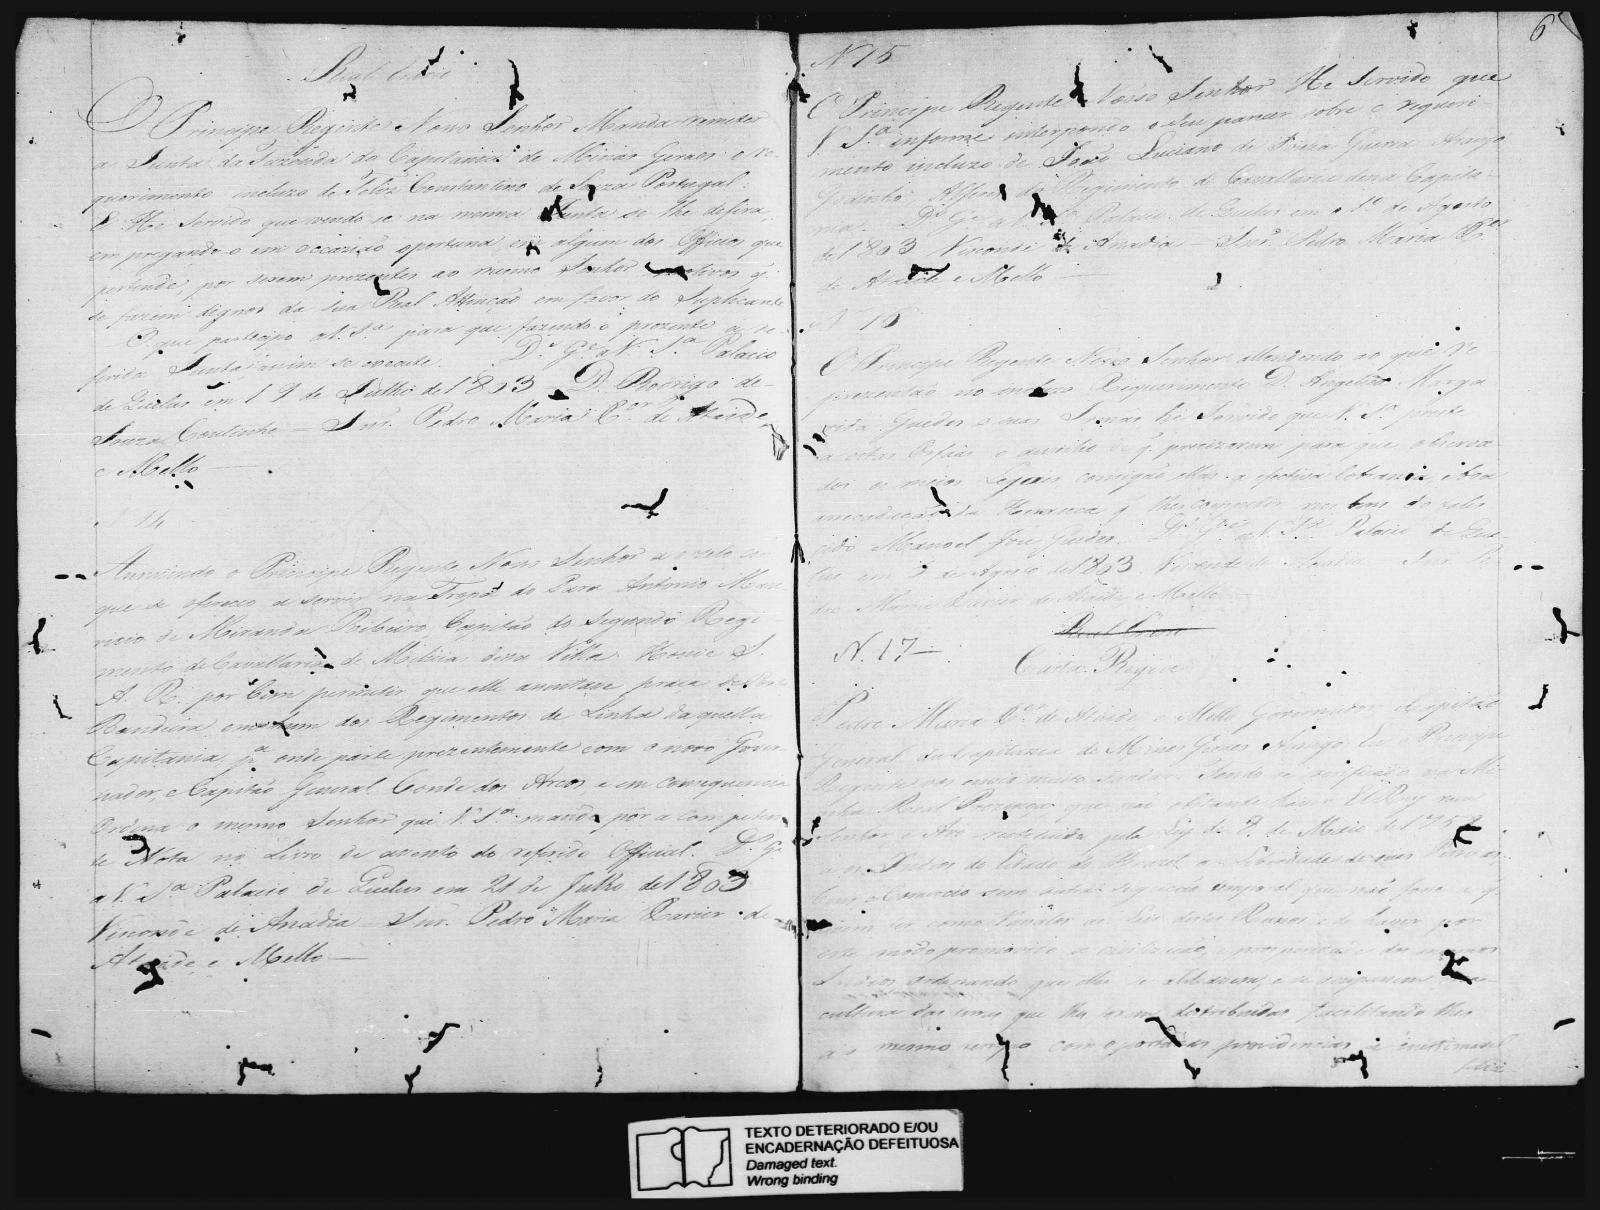 Real Erario
O Principe Regente Nosso Senhor Manda remeter
a Junta da Fazenda da Capitania de Minas Geraes o re-
querimento incluzo de Felis Constantino de Souza Portugal:
E He Servido que vendo-se na mesma Junta se lhe defira,
empregando-o em occazião oportuna em algum dos Officios que
pertende, por serem prezentes ao mesmo Senhor motivos q̃
se fazem dignos da Sua Real Attenção em favor do Suplicante
O que participo a V. S.ª para que fazendo-o prezente á re-
ferida Junta assim se execute. D.s G.e a V. S.ª Palacio
de Quelus em 19 de Julho de 1803 D. Rodrigo de
Souza Coutinho — Snr. Pedro Maria X.er de Ataide
e Mello —
N 14
Annuindo o Principe Regente Nosso Senhor ao zelo com
que se ofereceo a servir na Tropa do Pará Antonio Mau
ricio de Miranda Ribeiro, Capitão do Segundo Regi-
mento de Cavallaria de Milicias dessa Villa: Houve S.
A. R. por bem permitir que elle asentase praça de Porta
Bandeira em hum dos Regimentos de Linha daquella
Capitania pª onde parte prezentemente com o novo Gover
nador, e Capitão General Conde dos Arcos e em consequencia
Ordena o mesmo Senhor que V. S.ª manda pôr a competen
te Nota no Livro de asento do referido Official. D.s G.e
a V. S.ª Palacio de Quelus em 21 de Julho de 1803
Visconde de Anadia — Snr. Pedro Maria Xavier de
Ataide, e Mello —
6
N 15
O Principe Regente Nosso Senhor He Servido que
V. S.ª informe interpondo o seu parecer sobre o requeri-
mento incluzo de João Luciano de Souza Guerra Araujo
Godinho, Alferes do Regimento de Cavallaria dessa Capita-
nia. D.s G.e a V. S.ª Palacio de Quelus em 1.º de Agosto
de 1803 Visconde de Anadia — Snr. Pedro Maria X.er
de Ataide e Mello —
N 16
O Principe Regente Nosso Senhor attendendo ao que re
prezentão no incluzo Requerimento D. Angelica Marga
rida Guedes e suas Irmãs he Servido que V. S.ª preste
a estas Orfãs o auxilio de q̃ precizarem para que observa
dos os meios Legaes consigão ellas a efectiva cobrança, e boa
arrecadação da Herança q̃ lhes compete nos bens do fale
cido Manoel Jose Guedes. D.s G.e a V. S.ª Palacio de Que-
lus em 3 de Agosto de 1803 Visconde de Anadia — Snr. Pe
dro Maria Xavier de Ataide, e Mello —
Real Erario
N. 17 —
Carta Regia
Pedro Maria X.er de Ataide, e Mello Governador e Capitão
General da Capitania de Minas Geraes Amigo. Eu o Principe
Regente vos envio muito saudar. Tendo se verificado na Mi-
nha Real Prezença que não obstante haver El Rey meu
Senhor e Avo restituido pela Ley de 7 de Maio de 1758
a os Indios do Estado do Brazil a Liberdade de suas Pessoas
bens e Comercio sem outra sogeição temporal que não fose a q̃
devem ter como Vasalos
este modo promovido a civilização, e prosperidade dos mesmos
Indios ordenando que elles se aldeasem, e se ocupasem na
cultura das terras que lhe foram destribuidas facilitando lhes
a o mesmo tempo com oportunas providencias o inestimavel
TEXTO DETERIORADO E/OU
ENCADERNAÇÃO DEFEITUOSA
Damaged text.
Wrong binding